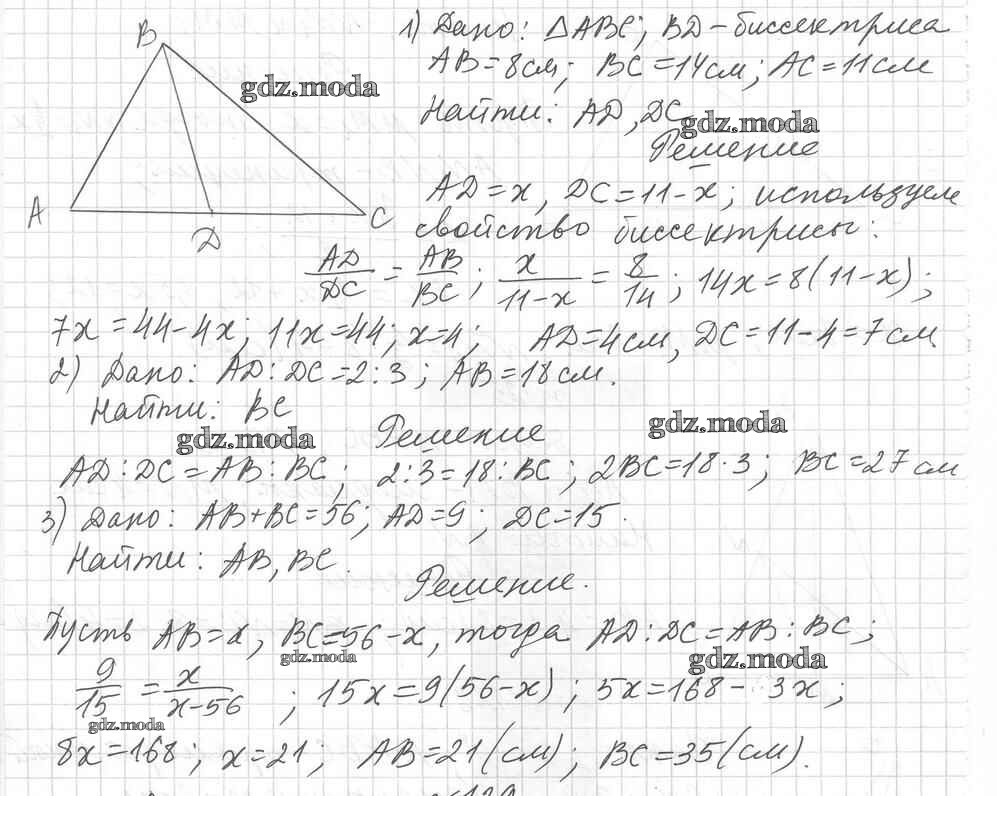 B
A
D
C
1) Дано: △ABC; BD – биссектриса
AB = 8 см; BC = 14 см; AC = 11 см
gdz.moda
Найти: AD, DC.
gdz.moda
Решение
AD = x, DC = 11 – x; используем
свойство биссектрисы:
AD/DC = AB/BC; x/(11 – x) = 8/14; 14x = 8(11 – x);
7x = 44 – 4x; 11x = 44; x = 4; AD = 4 см, DC = 11 – 4 = 7 см
2) Дано: AD : DC = 2 : 3; AB = 18 см.
Найти: BC
gdz.moda
Решение
gdz.moda
AD : DC = AB : BC; 2 : 3 = 18 : BC; 2BC = 18 · 3; BC = 27 см
3) Дано: AB + BC = 56; AD = 9; DC = 15.
Найти: AB, BC.
Решение.
Пусть AB = x, BC = 56 – x, тогда AD : DC = AB : BC;
gdz.moda
gdz.moda
9/15 = x/(x – 56); 15x = 9(56 – x); 5x = 168 – 3x;
gdz.moda
8x = 168; x = 21; AB = 21 (см); BC = 35 (см).